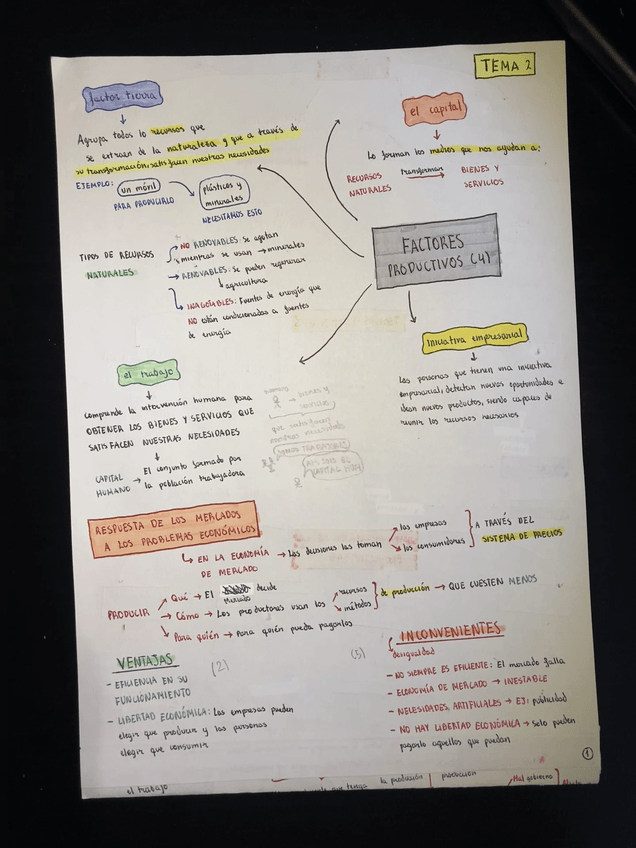 TEMA 2
factor tierra
Agrupa todos lo recursos que
se extraen de la naturaleza y que a través de
su transformación, satisfacen nuestras necesidades
EJEMPLO:
un móvil
PARA PRODUCIRLO
plásticos y
minerales
NECESITAMOS ESTO
TIPOS DE RECURSOS
NATURALES
NO RENOVABLES: Se agotan
mientras se usan → minerales
→ RENOVABLES: Se pueden regenerar
agricultura
INAGOTABLES: Fuentes de energía que
NO están condicionadas a fuentes
de energía
el capital
Lo forman los medios que nos ayudan a:
RECURSOS
NATURALES
transforman
BIENES Y
SERVICIOS
FACTORES
PRODUCTIVOS (4)
Iniciativa empresarial
Las personas que tienen una iniciativa
empresarial, detectan nuevas oportunidades e
idean nuevos productos, siendo capaces de
reunir los recursos necesarios
el trabajo
Comprende la intervención humana para
OBTENER LOS BIENES Y SERVICIOS QUE
SATISFACEN NUESTRAS NECESIDADES
CAPITAL
HUMANO
→ El conjunto formado por
la población trabajadora
RESPUESTA DE LOS MERCADOS
A LOS PROBLEMAS ECONÓMICOS
EN LA ECONOMÍA
DE MERCADO
→ Las decisiones las toman
las empresas
los consumidores
A TRAVÉS DEL
SISTEMA DE PRECIOS
PRODUCIR
Qué → El mercado decide
Cómo → Los productores usan los
recursos
métodos
de producción → QUE CUESTEN MENOS
Para quién → Para quién pueda pagarlos
VENTAJAS
(2)
- EFICIENCIA EN SU
FUNCIONAMIENTO
- LIBERTAD ECONÓMICA: Las empresas pueden
elegir que producir y las personas
elegir que consumir
(3)
INCONVENIENTES
desigualdad
- NO SIEMPRE ES EFICIENTE: El mercado falla
- ECONOMÍA DE MERCADO → INESTABLE
- NECESIDADES, ARTIFICIALES → EJ: publicidad
- NO HAY LIBERTAD ECONÓMICA → Solo pueden
pagarlo aquellos que puedan
1
el trabajo
que tenga
la producción
producción